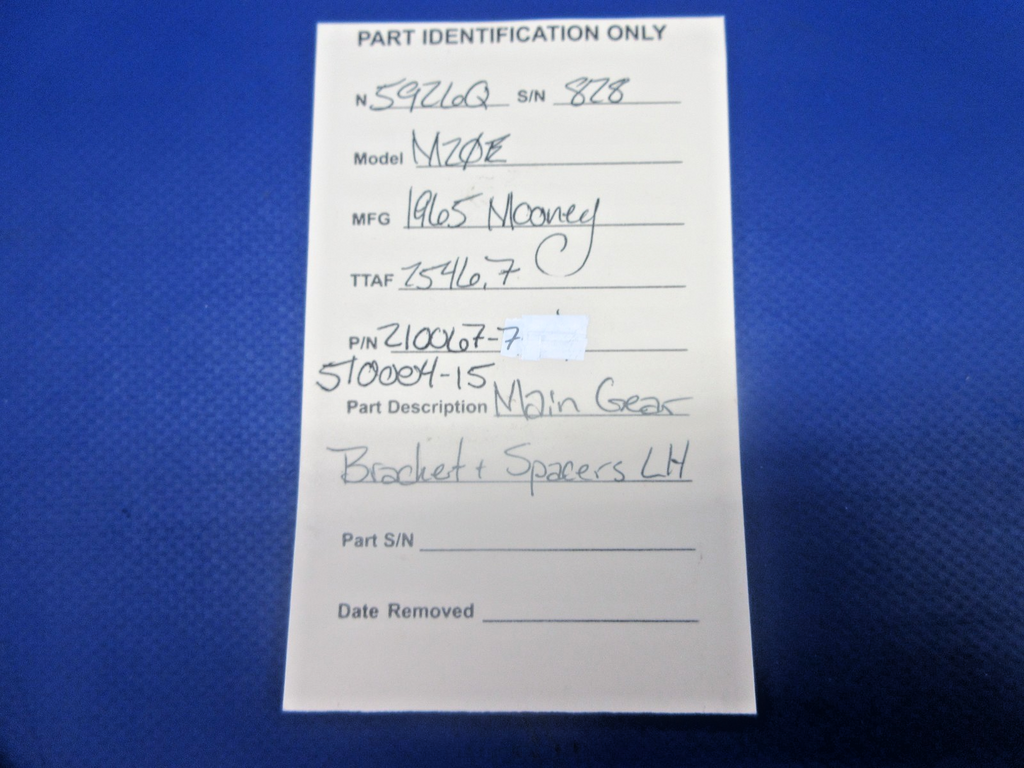 PART IDENTIFICATION ONLY
N 5926Q S/N 828
Model M20E
MFG 1965 Mooney
TTAF 2546.7
P/N 210067-7
510004-15
Part Description Main Gear
Bracket + Spacers LH
Part S/N
Date Removed